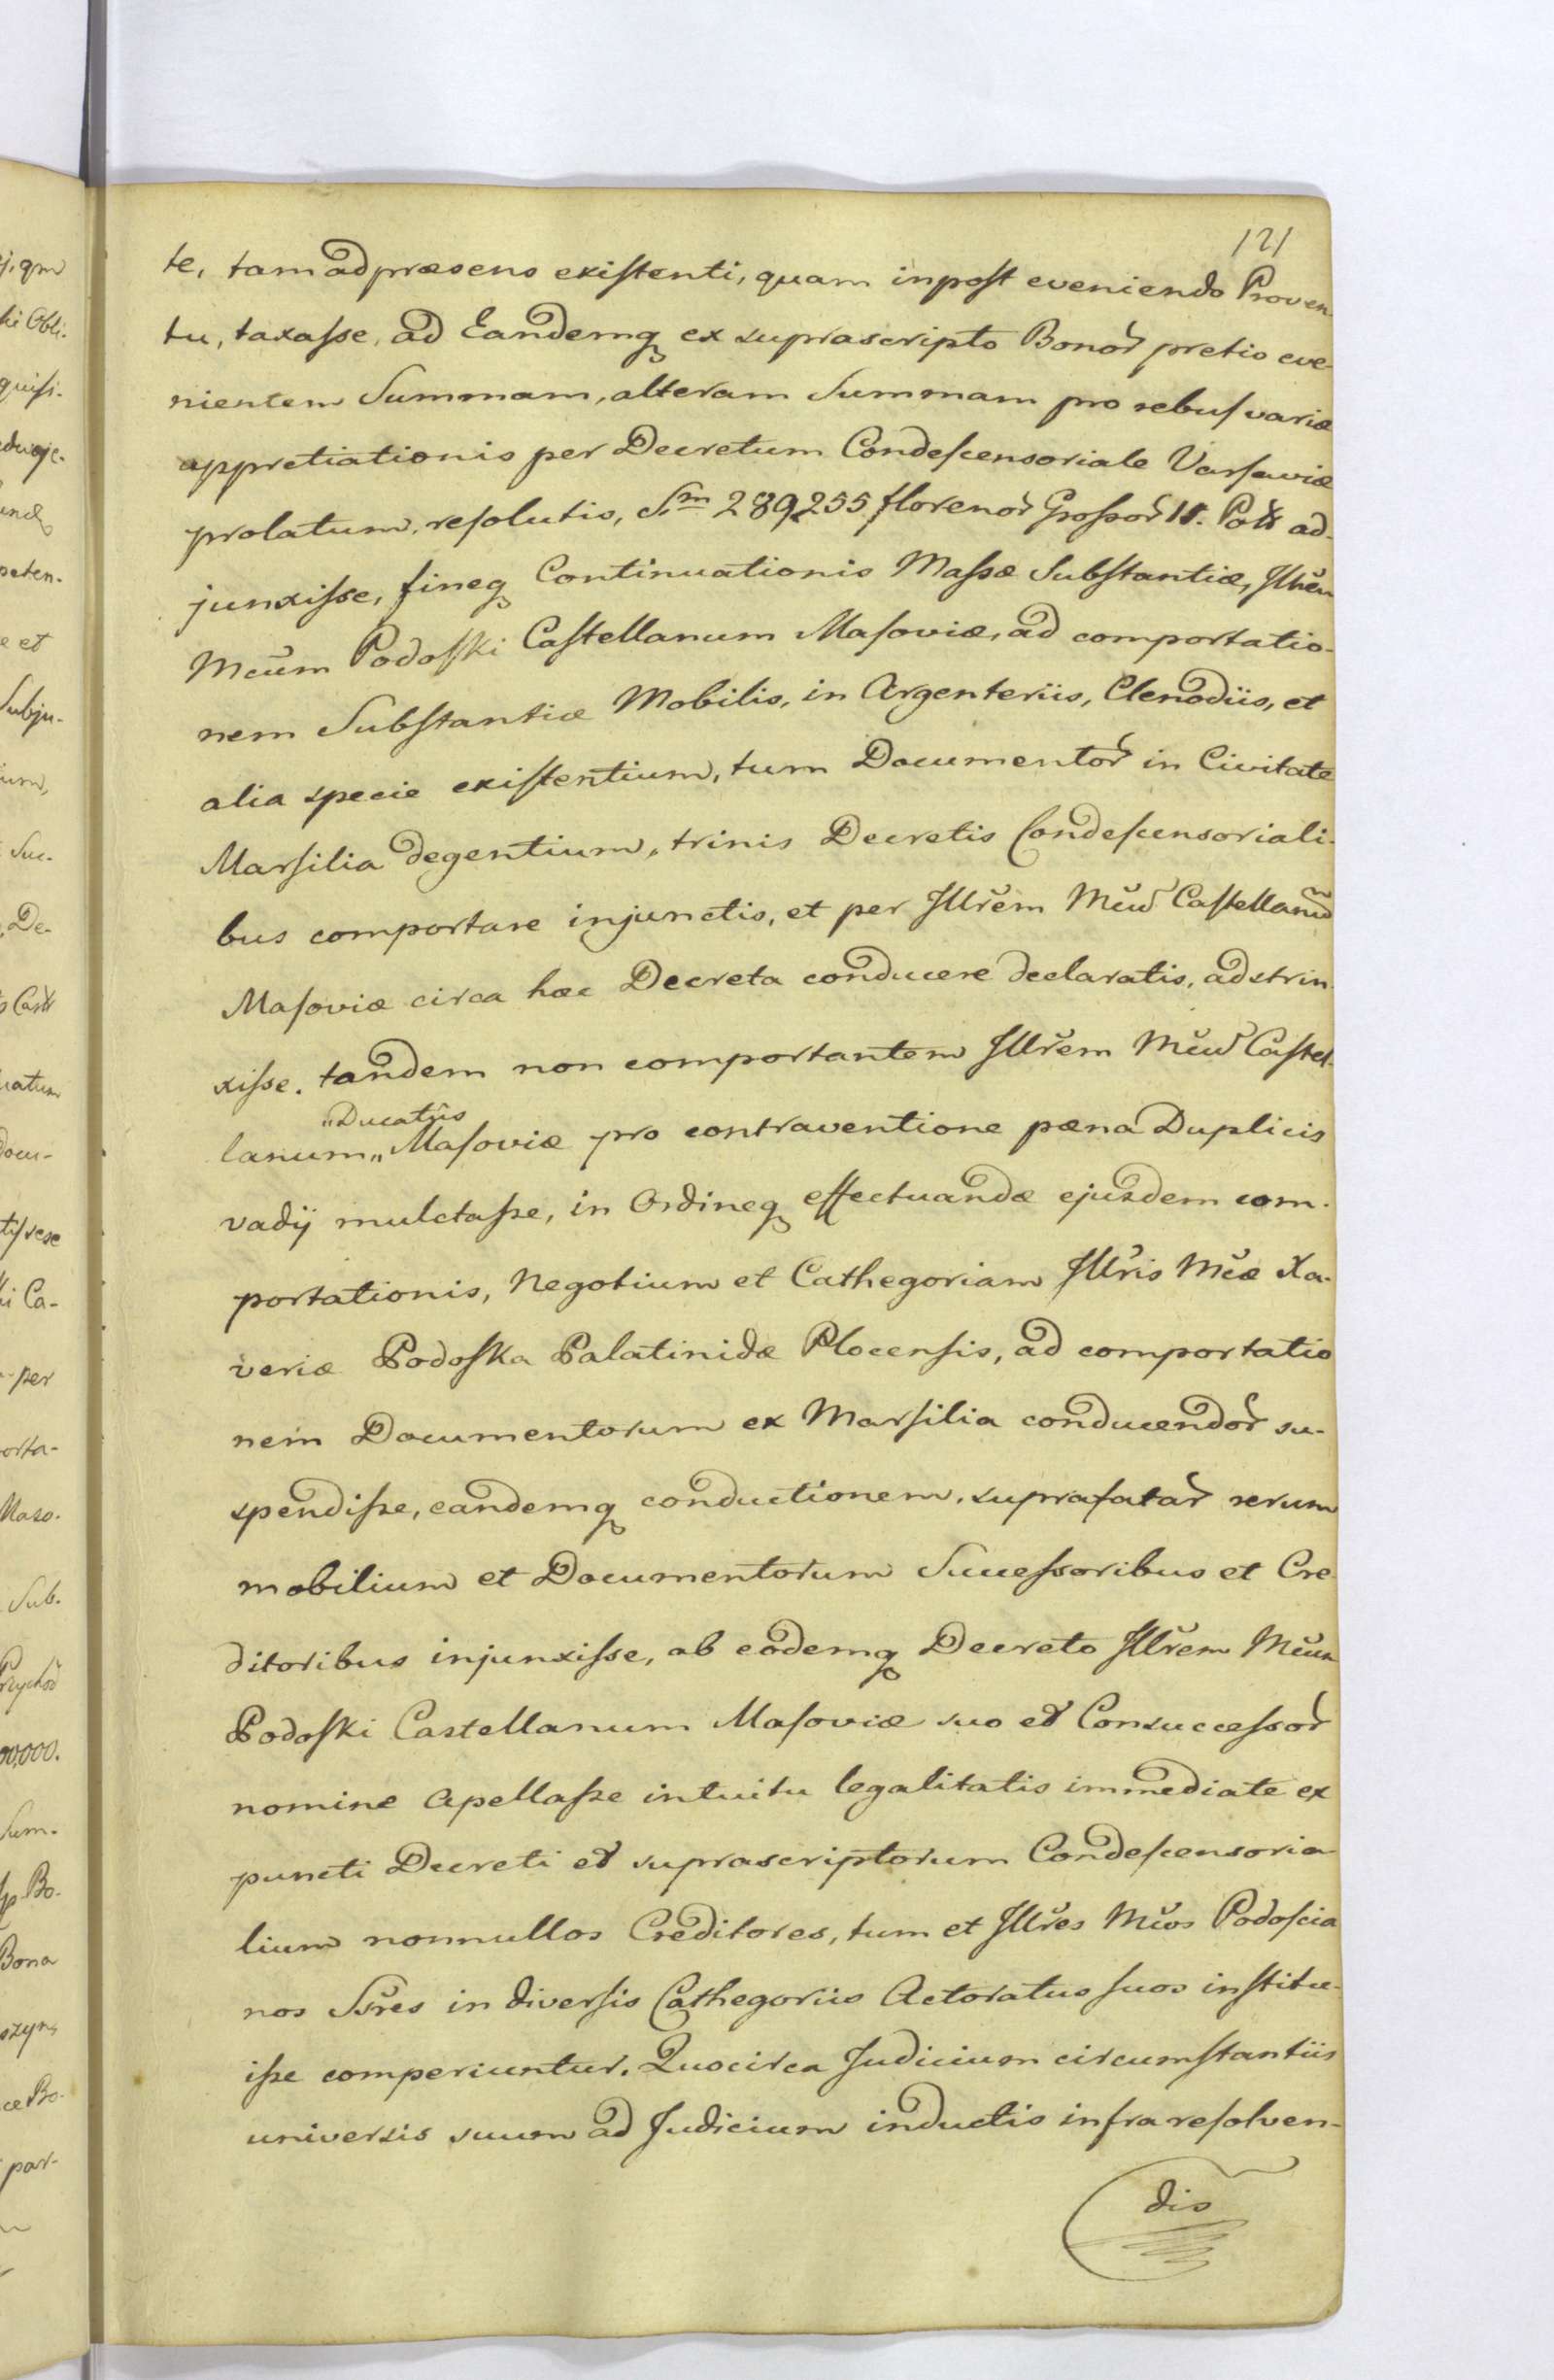 121
te, tam ad præsens existenti, quam inpost eveniendo Proven
tu, taxasse, ad Eandemq ex suprascripto Bonor pretio eve
nientem Summam, alteram Summam pro rebus variæ
appretiationis per Decretum Condescensoriale Varsaviæ
prolatum, resolutis, Sm 289255 florenor Grossor 15. Polł ad-
junxisse, fineq Continuationis Massæ Substantiæ, Illrem
Mcum Podoski Castellanum Masoviæ, ad comportatio-
nem Substantiæ Mobilis, in Argenteriis, Clenodiis, et
alia specie existentium, tum Documentor in Civitate
Marsilia degentium, trinis Decretis Condescensoriali-
bus comportare injunctis, et per Illrem Mcum Castellanum
Masoviæ circa hæc Decreta conducere declaratis, adstrin
xisse. tandem non comportantem Illrem Mcum Castel-
„Ducatus
lanum „ Masoviæ pro contraventione pæna Duplicis
vadij mulctasse, in Ordineq effectuandæ ejusdem com-
portationis, Negotium et Cathegoriam Illris Mcæ Xa-
veriæ Podoska Palatinidæ Plocensis, ad comportatio
nem Documentorum ex Marsilia conducendor su-
spendisse, eandemq conductionem, suprafatar rerum
mobilium et Documentorum Successoribus et Cre
ditoribus injunxisse, ab eodemq Decreto Illrem Mcum
Podoski Castellanum Masoviæ suo et Consuccessor
nomine Apellasse intuitu legalitatis immediate ex
puncti Decreti et suprascriptorum Condescensoria
lium nonnullos Creditores, tum et Illres Mcos Podoscia
nos Ssres in diversis Cathegoriis Actoratus suos institu-
isse comperiuntur. Quocirca Judicium circumstantiis
universis suum ad Judicium inductis infra resolven-
dis